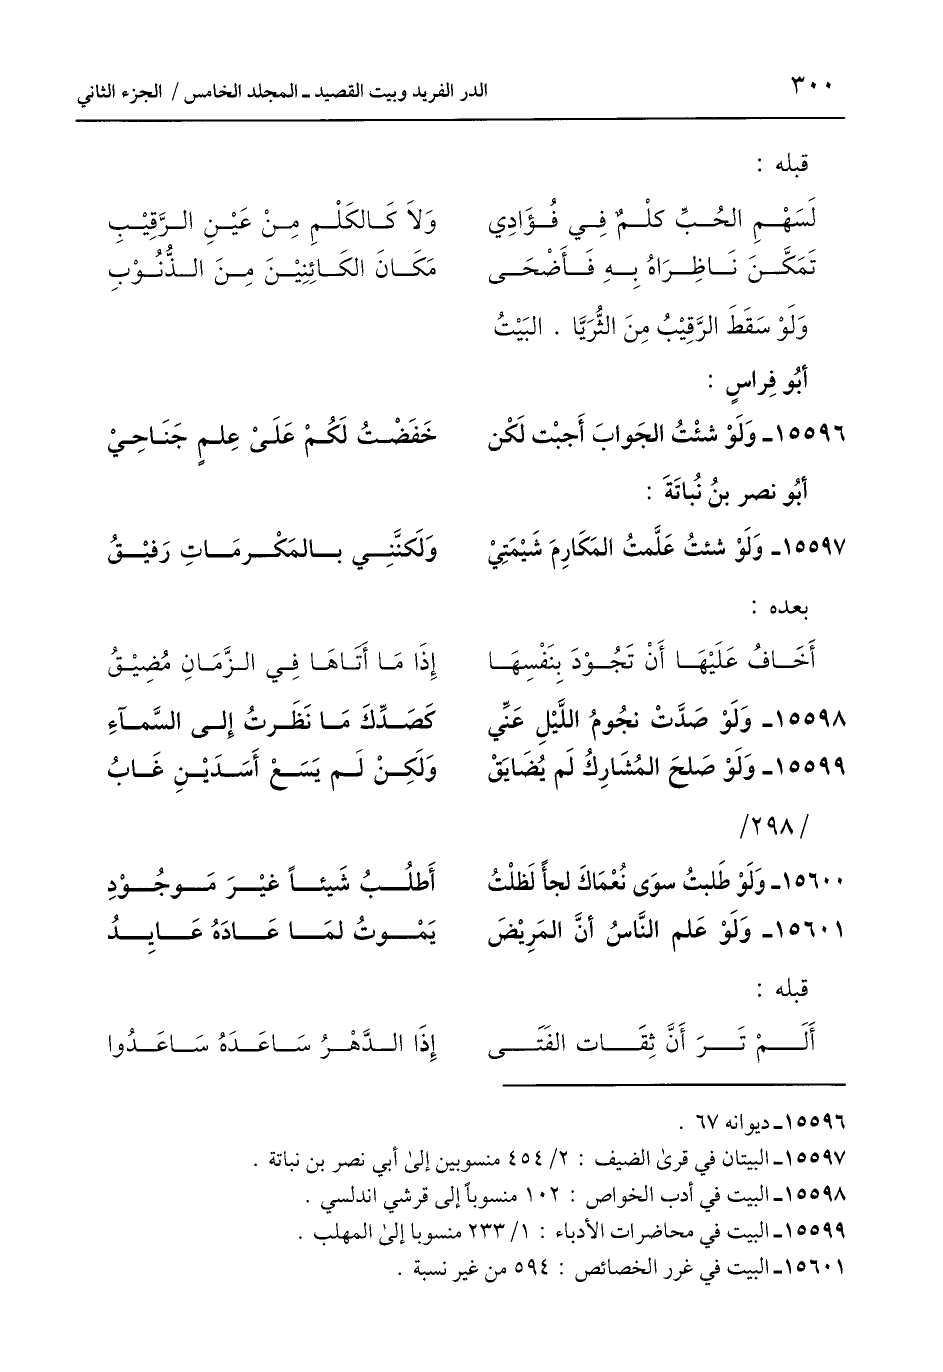 ٣٠٠ الدر الفريد وبيت القصيد ـ المجلد الخامس / الجزء الثاني
قبله :
لَسَهْمِ الحُبِّ كلْمٌ فِي فُؤَادِي وَلاَ كَالكَلْمِ مِنْ عَيْنِ الرَّقِيْبِ
تَمَكَّنَ نَاظِرَاهُ بِهِ فَأَضْحَى مَكَانَ الكَائِنِيْنَ مِنَ الذُّنُوْبِ
وَلَوْ سَقَطَ الرَّقِيْبُ مِنَ الثُّرَيَّا . البَيْتُ
أبُو فِراسٍ :
١٥٥٩٦ـ وَلَوْ شئْتُ الجَوابَ أجبْت لَكْن خَفَضْتُ لَكُمْ عَلَىْ عِلمٍ جَنَاحِيْ
أبُو نصر بنُ نُباتَةَ :
١٥٥٩٧ـ وَلَوْ شئتُ عَلَّمتُ المَكَارِمَ شَيْمَتِيْ وَلَكنَّنِي بِالمَكْرمَاتِ رَفيْقُ
بعده :
أَخَافُ عَلَيْهَا أَنْ تَجُوْدَ بِنَفْسِهَا إِذَا مَا أَتَاهَا فِي الزَّمَانِ مُضِيْقُ
١٥٥٩٨ـ وَلَوْ صَدَّتْ نجُومُ اللَّيْلِ عَنِّي كَصَدِّكَ مَا نَظَرتُ إِلى السَّمآءِ
١٥٥٩٩ـ وَلَوْ صَلحَ المُشَاركُ لَم يُضَايَقْ وَلَكِنْ لَم يَسَعْ أَسَدَيْنِ غَابُ
/٢٩٨/
١٥٦٠٠ـ وَلَوْ طَلَبتُ سوَى نُعْمَاكَ لجأً لَظَلْتُ أَطلُبُ شَيئاً غيْرَ مَوجُوْدِ
١٥٦٠١ـ وَلَوْ علم النَّاسُ أنَّ المَرِيْضَ يَمْوتُ لمَا عَادَهُ عَايِدُ
قبله :
أَلَمْ تَرَ أَنَّ ثِقَات الفَتَى إِذَا الدَّهْرُ سَاعَدَهُ سَاعَدُوا
١٥٥٩٦ـ ديوانه ٦٧ .
١٥٥٩٧ـ البيتان في قرىٰ الضيف : ٢/ ٤٥٤ منسوبين إلىٰ أبي نصر بن نباتة .
١٥٥٩٨ـ البيت في أدب الخواص : ١٠٢ منسوباً إلى قرشي اندلسي .
١٥٥٩٩ـ البيت في محاضرات الأدباء : ١/ ٢٣٣ منسوبا إلىٰ المهلب .
١٥٦٠١ـ البيت في غرر الخصائص : ٥٩٤ من غير نسبة .